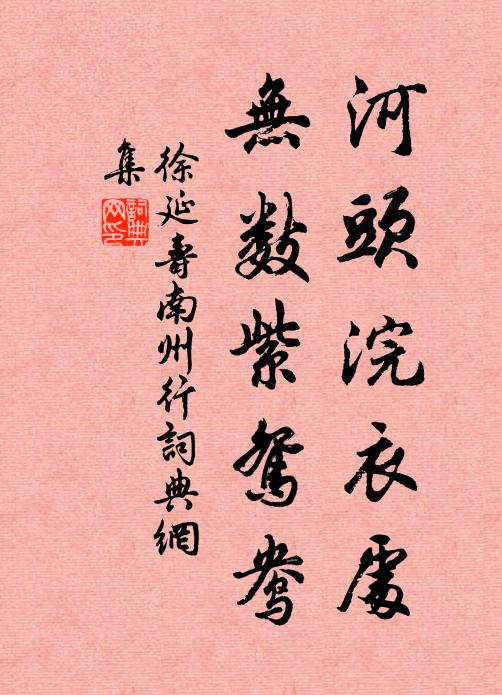 河頭浣衣處
無數紫鴛鴦
徐延壽南州行詞典網
集
詞典
網印